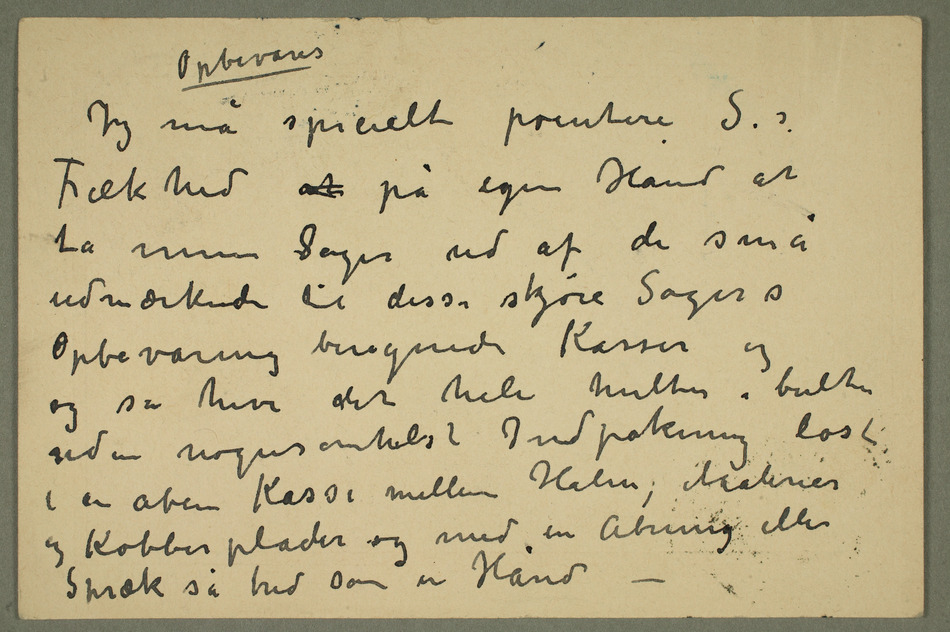 Opbevares
Jeg må specielt pointere S.s.
Frækhed at på egen Hånd at
ta mine Sager ud af de små
udmærkede til disse skjøre Sagers
Opbevaring beregnede Kasser og
og så hive det hele hulter i bulter
uden nogensomhelst Indpakning løst
i en åben Kasse mellem Halm, Malerier
og Kobberplader og med en Åbning eller
Spræk så bred som en Hånd —